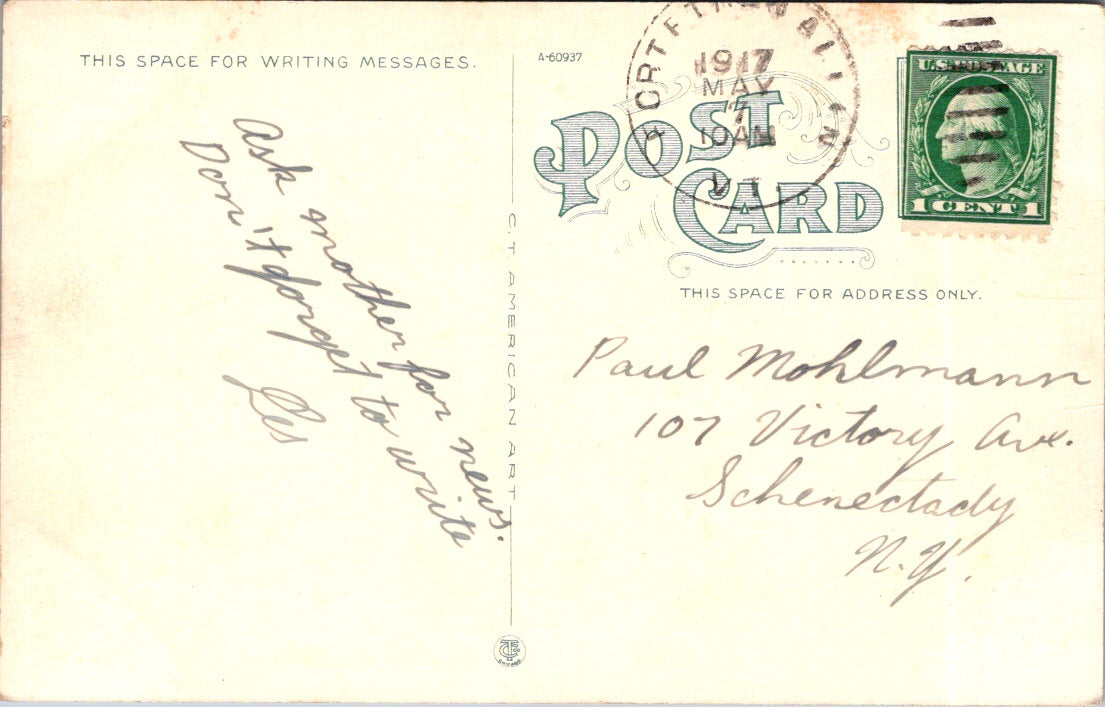 THIS SPACE FOR WRITING MESSAGES.
Ask mother for news.
Don't forget to write
Les
C. T. AMERICAN ART
CHICAGO
A-60937
POST CARD
FORT ETHAN ALLEN
1917
MAY
7
10 AM
VT.
U.S. POSTAGE
1 CENT 1
THIS SPACE FOR ADDRESS ONLY.
Paul Mohlmann
107 Victory Ave.
Schenectady
N.Y.